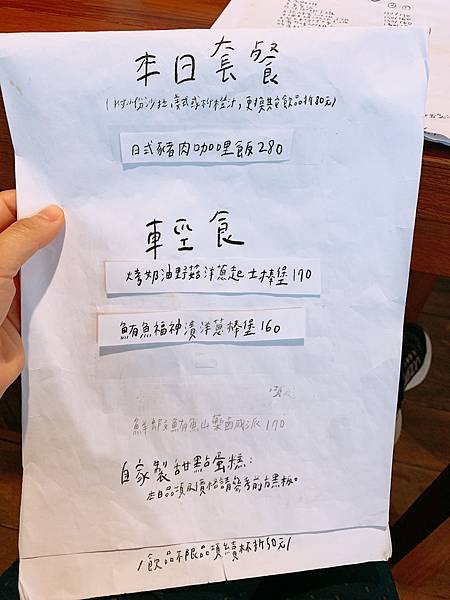 本日套餐
(附小份沙拉,美式或柳橙汁,更換其它飲品折80元)
日式豬肉咖哩飯280
輕食
烤奶油野菇洋蔥起士棒堡170
鮪魚福神漬洋蔥棒堡160
鮮蝦鮪魚山藥鹹派170
自家製甜點蛋糕:
本日品項及價格請參考前方黑板。
/飲品不限品項續杯折50元/